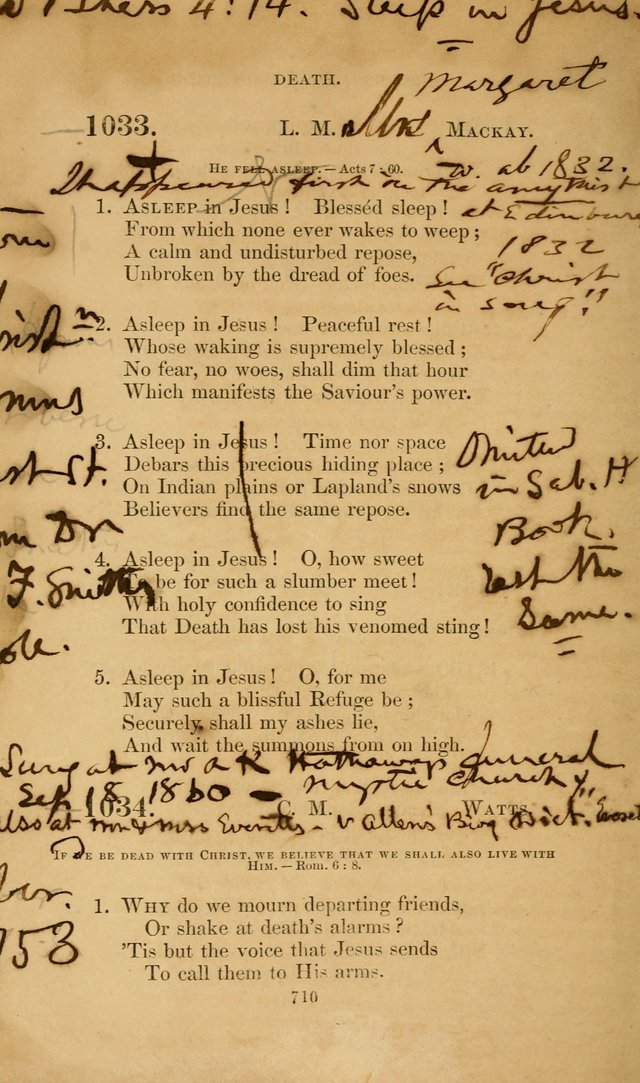 1 Thess 4:14. Sleep in Jesus.
DEATH.
Margaret
1033.
L. M. Mrs MACKAY.
HE FELL ASLEEP. — Acts 7 : 60.
w. ab 1832.
It appeared first in The amythist
at Edinburg
1832
See "Christ
in song"
1. ASLEEP in Jesus ! Blesséd sleep !
From which none ever wakes to weep ;
A calm and undisturbed repose,
Unbroken by the dread of foes.
2. Asleep in Jesus ! Peaceful rest !
Whose waking is supremely blessed ;
No fear, no woes, shall dim that hour
Which manifests the Saviour's power.
3. Asleep in Jesus ! Time nor space
Debars this precious hiding place ;
On Indian plains or Lapland's snows
Believers find the same repose.
Omitted
in Sab. H
Book.
rest the
Same.
4. Asleep in Jesus ! O, how sweet
To be for such a slumber meet !
With holy confidence to sing
That Death has lost his venomed sting !
5. Asleep in Jesus ! O, for me
May such a blissful Refuge be ;
Securely shall my ashes lie,
And wait the summons from on high.
Sung at Mrs A K Hathaways funeral
Sep 18 1860 — Mystic Church
1034. C. M. WATTS.
also at Mr & Mrs v Allen's Biog Dict.
IF WE BE DEAD WITH CHRIST, WE BELIEVE THAT WE SHALL ALSO LIVE WITH
HIM. — Rom. 6 : 8.
1. WHY do we mourn departing friends,
Or shake at death's alarms ?
'Tis but the voice that Jesus sends
To call them to His arms.
710
St.
Dr
F. Smith
753